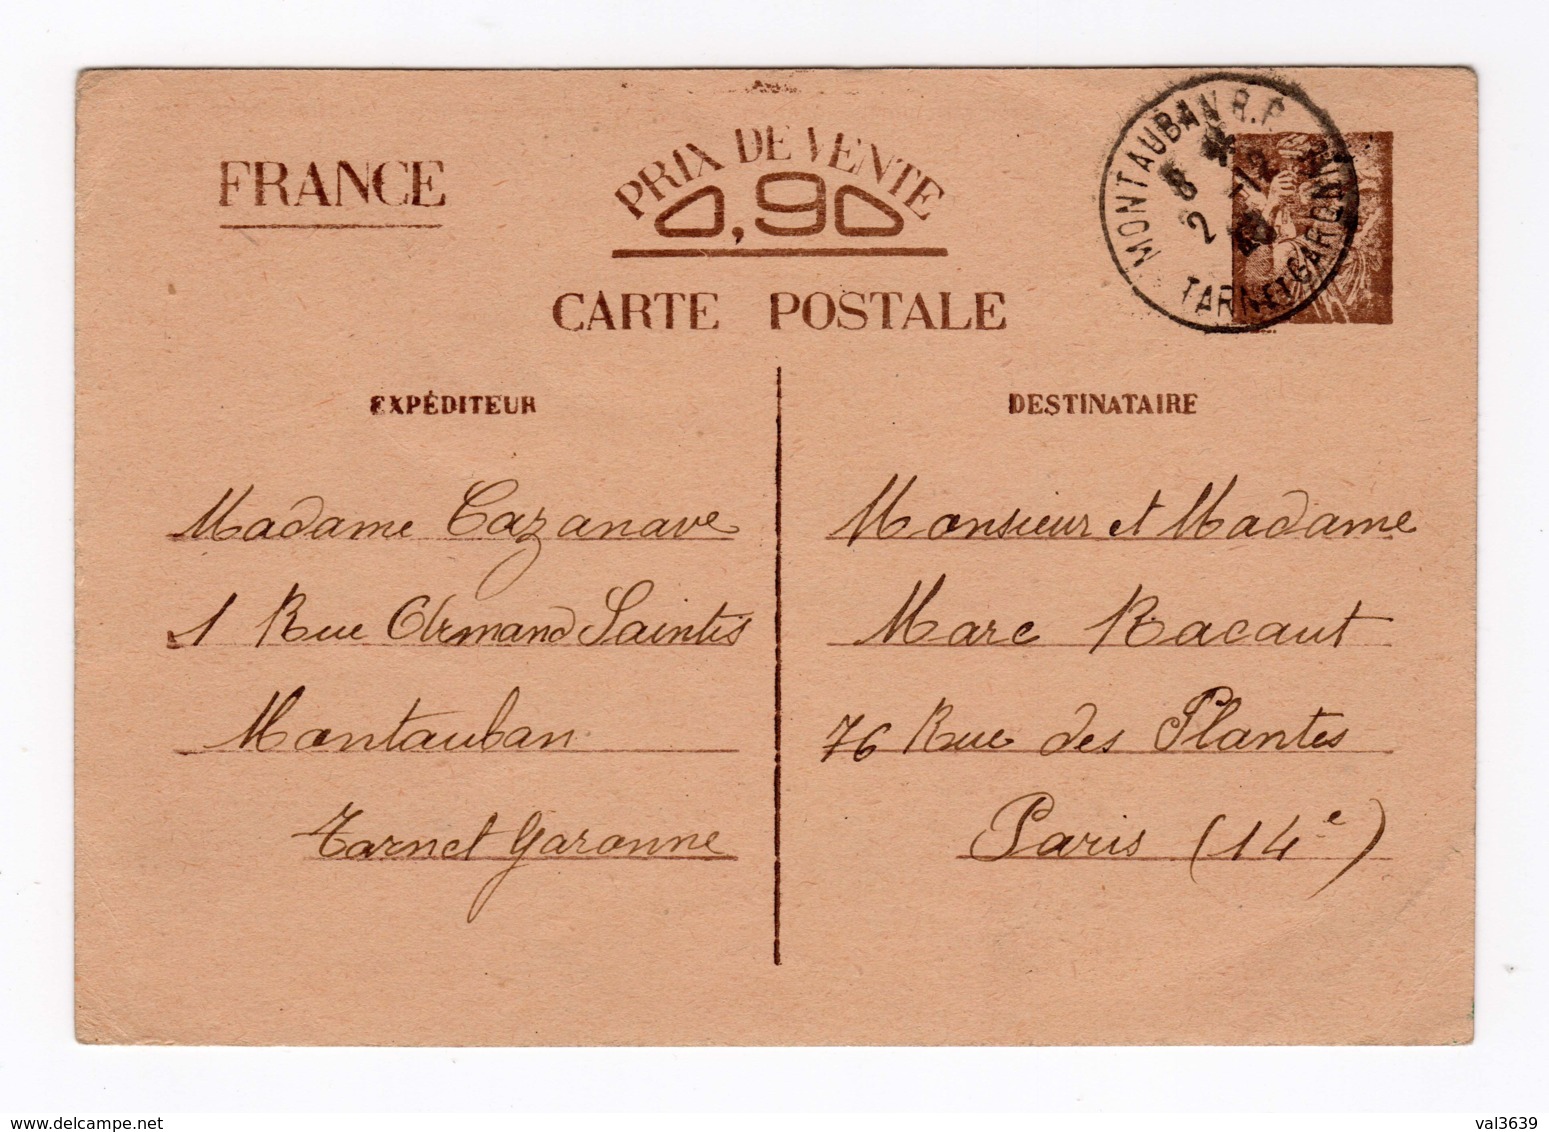 FRANCE
PRIX DE VENTE
0,90
CARTE POSTALE
MONTAUBAN R.P.
8
2 -12
TARN ET GARONNE
EXPÉDITEUR
Madame Cazanave
1 Rue Armand Saintis
Montauban
Tarn et Garonne
DESTINATAIRE
Monsieur et Madame
Marc Racaut
76 Rue des Plantes
Paris (14e)
www.delcampe.net
val3639